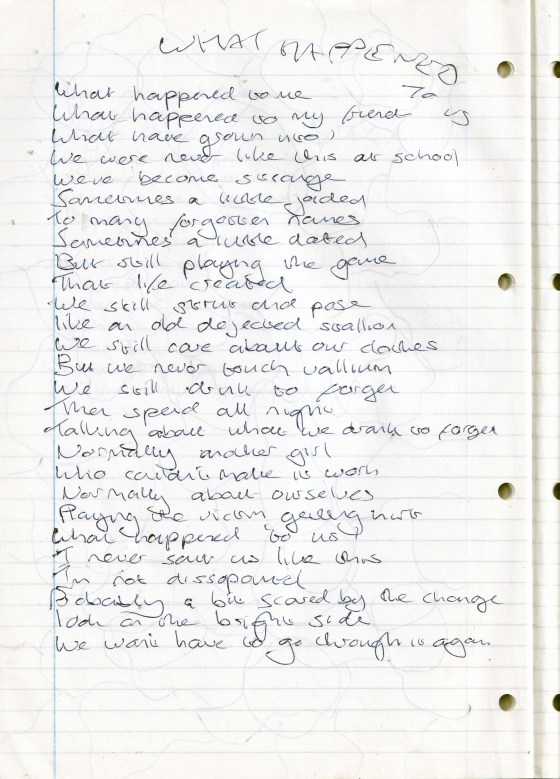 WHAT HAPPENED
What happened to me To
What happened to my friend us
What have grown into,
We were never like this at school
Weve become strange
Sometimes a little jaded
To many forgotten names
Sometimes a little dated
But still playing the game
That life created
We still strut and pose
like an old dejected stallion
We still care about our clothes
But we never touch vallium
We still drink to forget
Then spend all night
Talking about what we drank to forget
Normally another girl
Who couldn't make it work
Normally about ourselves
Playing the victim getting hurt
What happened to us
I never saw us like this
I'm not dissopointed
Probably a bit scared by the change
look on the bright side
We wont have to go through it again